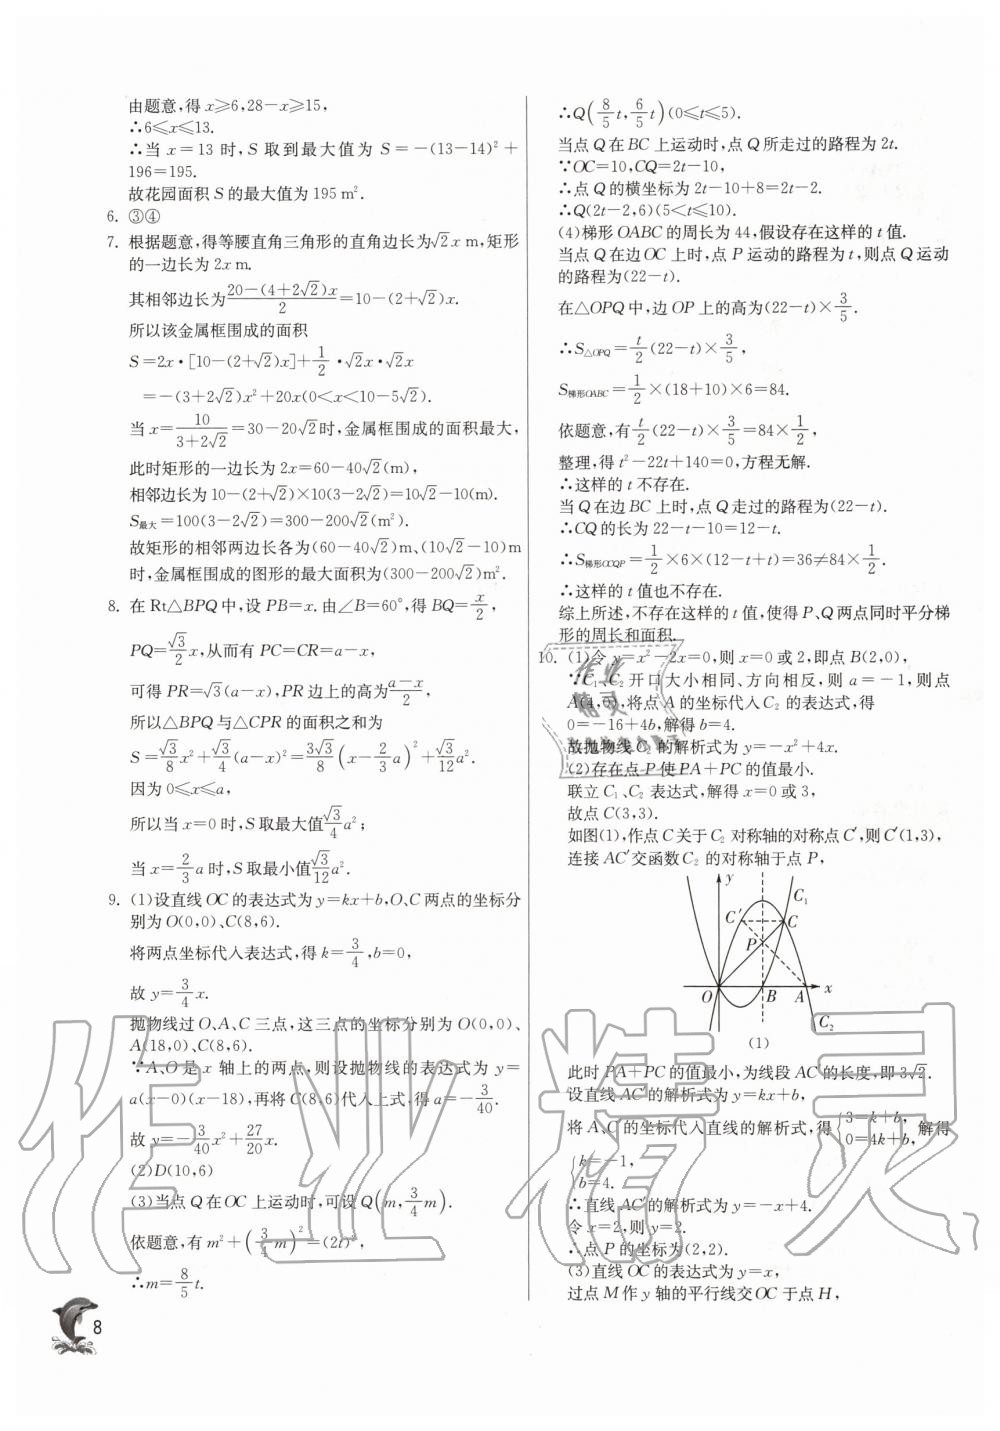 由题意,得 x⩾6,28−x⩾15,
∴6⩽x⩽13.
∴当 x=13 时,S 取到最大值为 S=−(13−14)²+
196=195.
故花园面积 S 的最大值为 195 m².
6. ③④
7. 根据题意,得等腰直角三角形的直角边长为√2 x m,矩形
的一边长为 2x m.
其相邻边长为 (20−(4+2√2)x)/2=10−(2+√2)x.
所以该金属框围成的面积
S=2x•[10−(2+√2)x]+1/2•√2x•√2x
=−(3+2√2)x²+20x(0<x<10−5√2).
当 x=10/(3+2√2)=30−20√2时,金属框围成的面积最大,
此时矩形的一边长为 2x=60−40√2(m),
相邻边长为 10−(2+√2)×10(3−2√2)=10√2−10(m).
S最大=100(3−2√2)=300−200√2(m²).
故矩形的相邻两边长各为(60−40√2)m、(10√2−10)m
时,金属框围成的图形的最大面积为(300−200√2)m².
8. 在 Rt△BPQ 中,设 PB=x.由∠B=60°,得 BQ=x/2,
PQ=√3/2 x,从而有 PC=CR=a−x,
可得 PR=√3(a−x),PR 边上的高为(a−x)/2,
所以△BPQ 与△CPR 的面积之和为
S=√3/8 x²+√3/4(a−x)²=3√3/8(x−2/3 a)²+√3/12 a².
因为 0⩽x⩽a,
所以当 x=0 时,S 取最大值√3/4 a²;
当 x=2/3 a 时,S 取最小值√3/12 a².
9. (1)设直线 OC 的表达式为 y=kx+b,O、C 两点的坐标分
别为 O(0,0)、C(8,6).
将两点坐标代入表达式,得 k=3/4,b=0,
故 y=3/4 x.
抛物线过 O、A、C 三点,这三点的坐标分别为 O(0,0)、
A(18,0)、C(8,6).
∵A、O 是 x 轴上的两点,则设抛物线的表达式为 y=
a(x−0)(x−18),再将 C(8,6)代入上式,得 a=−3/40.
故 y=−3/40 x²+27/20 x.
(2)D(10,6)
(3)当点 Q 在 OC 上运动时,可设 Q(m,3/4 m).
依题意,有 m²+(3/4 m)²=(2t)²,
∴m=8/5 t.
8
∴Q(8/5 t,6/5 t)(0⩽t⩽5).
当点 Q 在 BC 上运动时,点 Q 所走过的路程为 2t.
∵OC=10,CQ=2t−10,
∴点 Q 的横坐标为 2t−10+8=2t−2.
∴Q(2t−2,6)(5<t⩽10).
(4)梯形 OABC 的周长为 44,假设存在这样的 t 值.
当点 Q 在边 OC 上时,点 P 运动的路程为 t,则点 Q 运动
的路程为(22−t).
在△OPQ 中,边 OP 上的高为(22−t)×3/5.
∴S△OPQ=t/2(22−t)×3/5,
S梯形OABC=1/2×(18+10)×6=84.
依题意,有 t/2(22−t)×3/5=84×1/2,
整理,得 t²−22t+140=0,方程无解.
∴这样的 t 不存在.
当 Q 在边 BC 上时,点 Q 走过的路程为(22−t).
∴CQ 的长为 22−t−10=12−t.
∴S梯形OCQP=1/2×6×(12−t+t)=36≠84×1/2.
∴这样的 t 值也不存在.
综上所述,不存在这样的 t 值,使得 P、Q 两点同时平分梯
形的周长和面积.
10. (1)令 y=x²−2x=0,则 x=0 或 2,即点 B(2,0),
∵C₁、C₂ 开口大小相同、方向相反,则 a=−1,则点
A(4,0),将点 A 的坐标代入 C₂ 的表达式,得
0=−16+4b,解得 b=4.
故抛物线 C₂ 的解析式为 y=−x²+4x.
(2)存在点 P 使 PA+PC 的值最小.
联立 C₁、C₂ 表达式,解得 x=0 或 3,
故点 C(3,3).
如图(1),作点 C 关于 C₂ 对称轴的对称点 C′,则 C′(1,3),
连接 AC′交函数 C₂ 的对称轴于点 P,
y
C₁
C′
C
P
O
B
A
x
C₂
(1)
此时 PA+PC 的值最小,为线段 AC′的长度,即 3√2.
设直线 AC′的解析式为 y=kx+b,
将 A、C′的坐标代入直线的解析式,得 {3=k+b, 0=4k+b, 解得
{k=−1, b=4.
∴直线 AC′的解析式为 y=−x+4.
令 x=2,则 y=2.
∴点 P 的坐标为(2,2).
(3)直线 OC 的表达式为 y=x,
过点 M 作 y 轴的平行线交 OC 于点 H,
作业精灵
作业
精灵